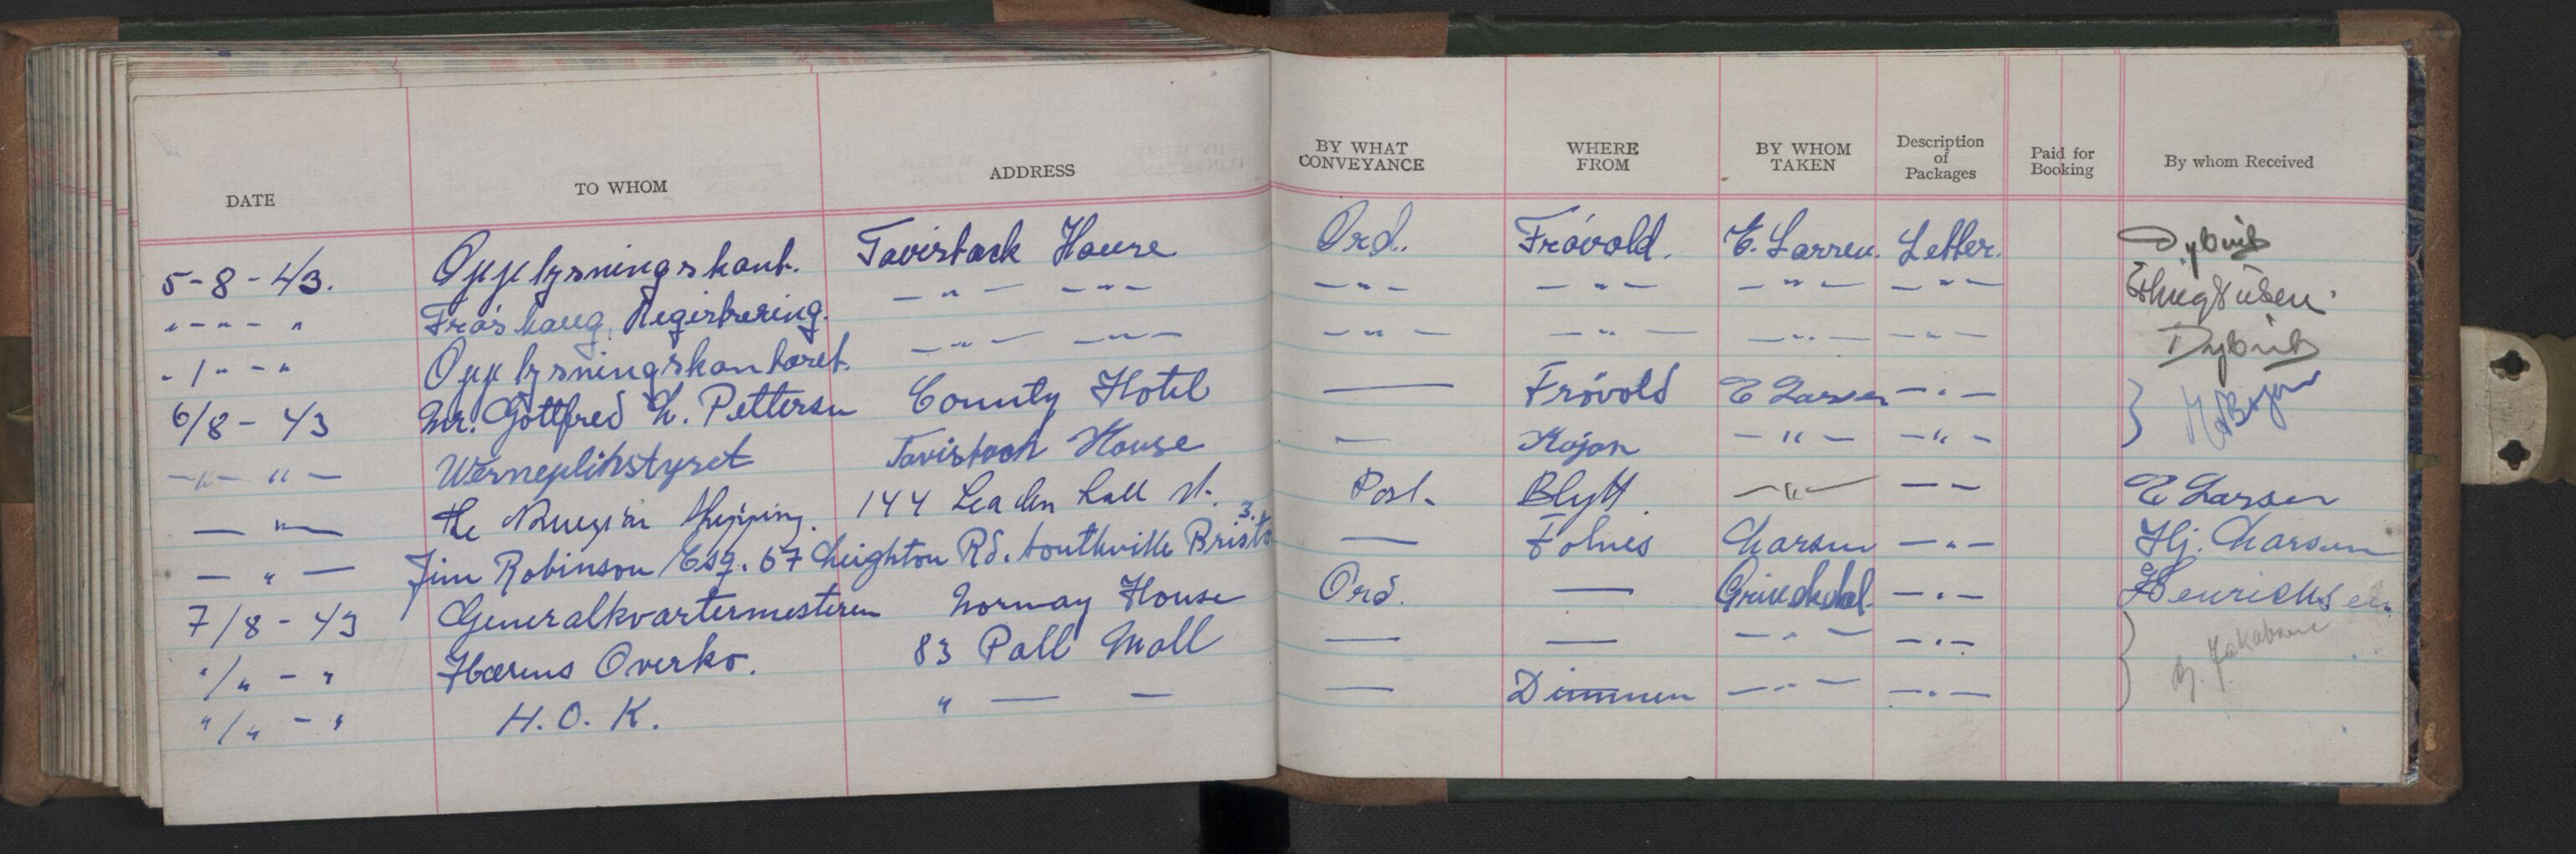 DATE TO WHOM ADDRESS BY WHAT CONVEYANCE WHERE FROM BY WHOM TAKEN Description of Packages Paid for Booking By whom Received
5-8-43. Opplysningskont. Tavistock House Ord. Frövold. E. Larsen. Letter. Dybvik
" - " - " Fröshaug, Registrering. - " - - " - - " - - " - - " - - " -
- / " - " Opplysningskontoret. - " - - " - - " - - " - - " - - " - Dybvik
6/8 - 43 Mr. Gottfred L. Pettersen County Hotel — Frövold E Larsen - " -
- " - " - Werneplikstyret Tavistock House — Kojan - " - - " -
- " - The Shipping. 144 Leadenhall st. Post. Blytt. - " - - - E Larsen
- " - Jim Robinson Esq. 67 Leighton Rd. Southville Bristo 3. — Folnes Larsen - " - Hj. Larsen
7/8 - 43 Generalkvartermesteren Norway House Ord. — Grindedal - " - Henrichsen
" / " - " Hærens Overko. 83 Pall Mall — — - " - - " -
" / " - " H.O.K. " — — — Dimmen - " - - " -